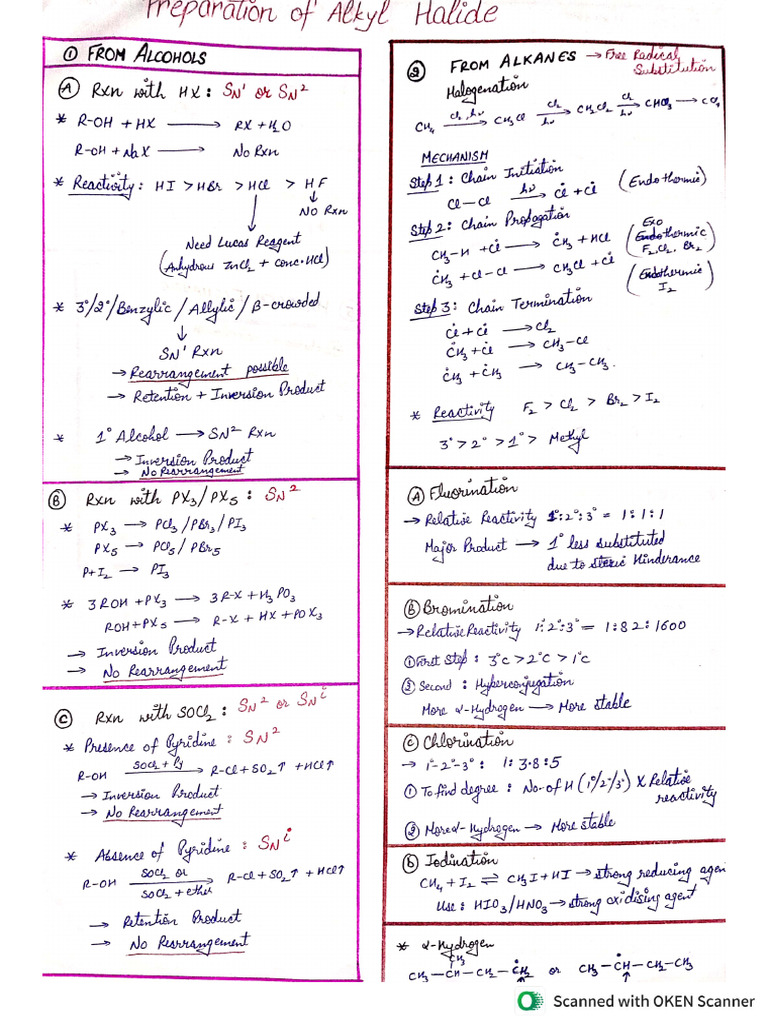 Preparation of Alkyl Halide
① FROM ALCOHOLS
Ⓐ Rxn with HX : SN¹ or SN²
* R-OH + HX ⟶ RX + H₂O
R-OH + NaX ⟶ No Rxn
* Reactivity : HI > HBr > HCl > HF
↓ ↓
No Rxn
Need Lucas Reagent
(Anhydrous ZnCl₂ + conc·HCl)
* 3°/2°/Benzylic / Allylic / β-crowded
↓
SN¹ Rxn
→ Rearrangement possible
→ Retention + Inversion Product
* 1° Alcohol ⟶ SN² Rxn
→ Inversion Product
→ No Rearrangement
Ⓑ Rxn with PX₃/PX₅ : SN²
* PX₃ ⟶ PCl₃ / PBr₃ / PI₃
PX₅ ⟶ PCl₅ / PBr₅
P+I₂ ⟶ PI₃
* 3ROH + PX₃ ⟶ 3R-X + H₃PO₃
ROH + PX₅ ⟶ R-X + HX + POX₃
→ Inversion Product
→ No Rearrangement
Ⓒ Rxn with SOCl₂ : SN² or SNⁱ
* Presence of Pyridine : SN²
R-OH —SOCl₂ + Py→ R-Cl + SO₂↑ + HCl↑
→ Inversion Product
→ No Rearrangement
* Absence of Pyridine : SNⁱ
R-OH —SOCl₂ or SOCl₂ + ether→ R-Cl + SO₂↑ + HCl↑
→ Retention Product
→ No Rearrangement
② FROM ALKANES → Free Radical
Substitution
Halogenation
CH₄ —Cl₂, hν→ CH₃Cl —Cl₂ hν→ CH₂Cl₂ —Cl hν→ CHCl₃ ⟶ CCl₄
MECHANISM
Step 1 : Chain Initiation
Cl—Cl —hν→ Ċl + Ċl (Endothermic)
Step 2 : Chain Propagation
CH₃-H + Ċl ⟶ ĊH₃ + HCl (Exothermic F₂, Cl₂, Br₂)
ĊH₃ + Cl-Cl ⟶ CH₃Cl + Ċl (Endothermic I₂)
Step 3 : Chain Termination
Ċl + Ċl ⟶ Cl₂
ĊH₃ + Ċl ⟶ CH₃-Cl
ĊH₃ + ĊH₃ ⟶ CH₃-CH₃.
* Reactivity F₂ > Cl₂ > Br₂ > I₂
3° > 2° > 1° > Methyl
Ⓐ Fluorination
→ Relative Reactivity 1°:2°:3° = 1:1:1
Major Product ⟶ 1° less substituted
due to steric Hinderance
Ⓑ Bromination
→ Relative Reactivity 1°:2°:3° = 1:82:1600
① First Step : 3°C > 2°C > 1°C
② Second : Hyperconjugation
More α-Hydrogen ⟶ More stable
Ⓒ Chlorination
→ 1°-2°-3° : 1:3·8:5
① To find degree : No·of H (1°/2°/3°) X Relative
reactivity
② More α-Hydrogen → More stable
ⓓ Iodination
CH₄ + I₂ ⇌ CH₃I + HI → strong reducing agen
Use : HIO₃/HNO₃ → strong oxidising agent
* α-Hydrogen
CH₃
CH₃—CH—CH₂—ĊH₂ or CH₃—ĊH—CH₂—CH₃
↑ ↑
Scanned with OKEN Scanner